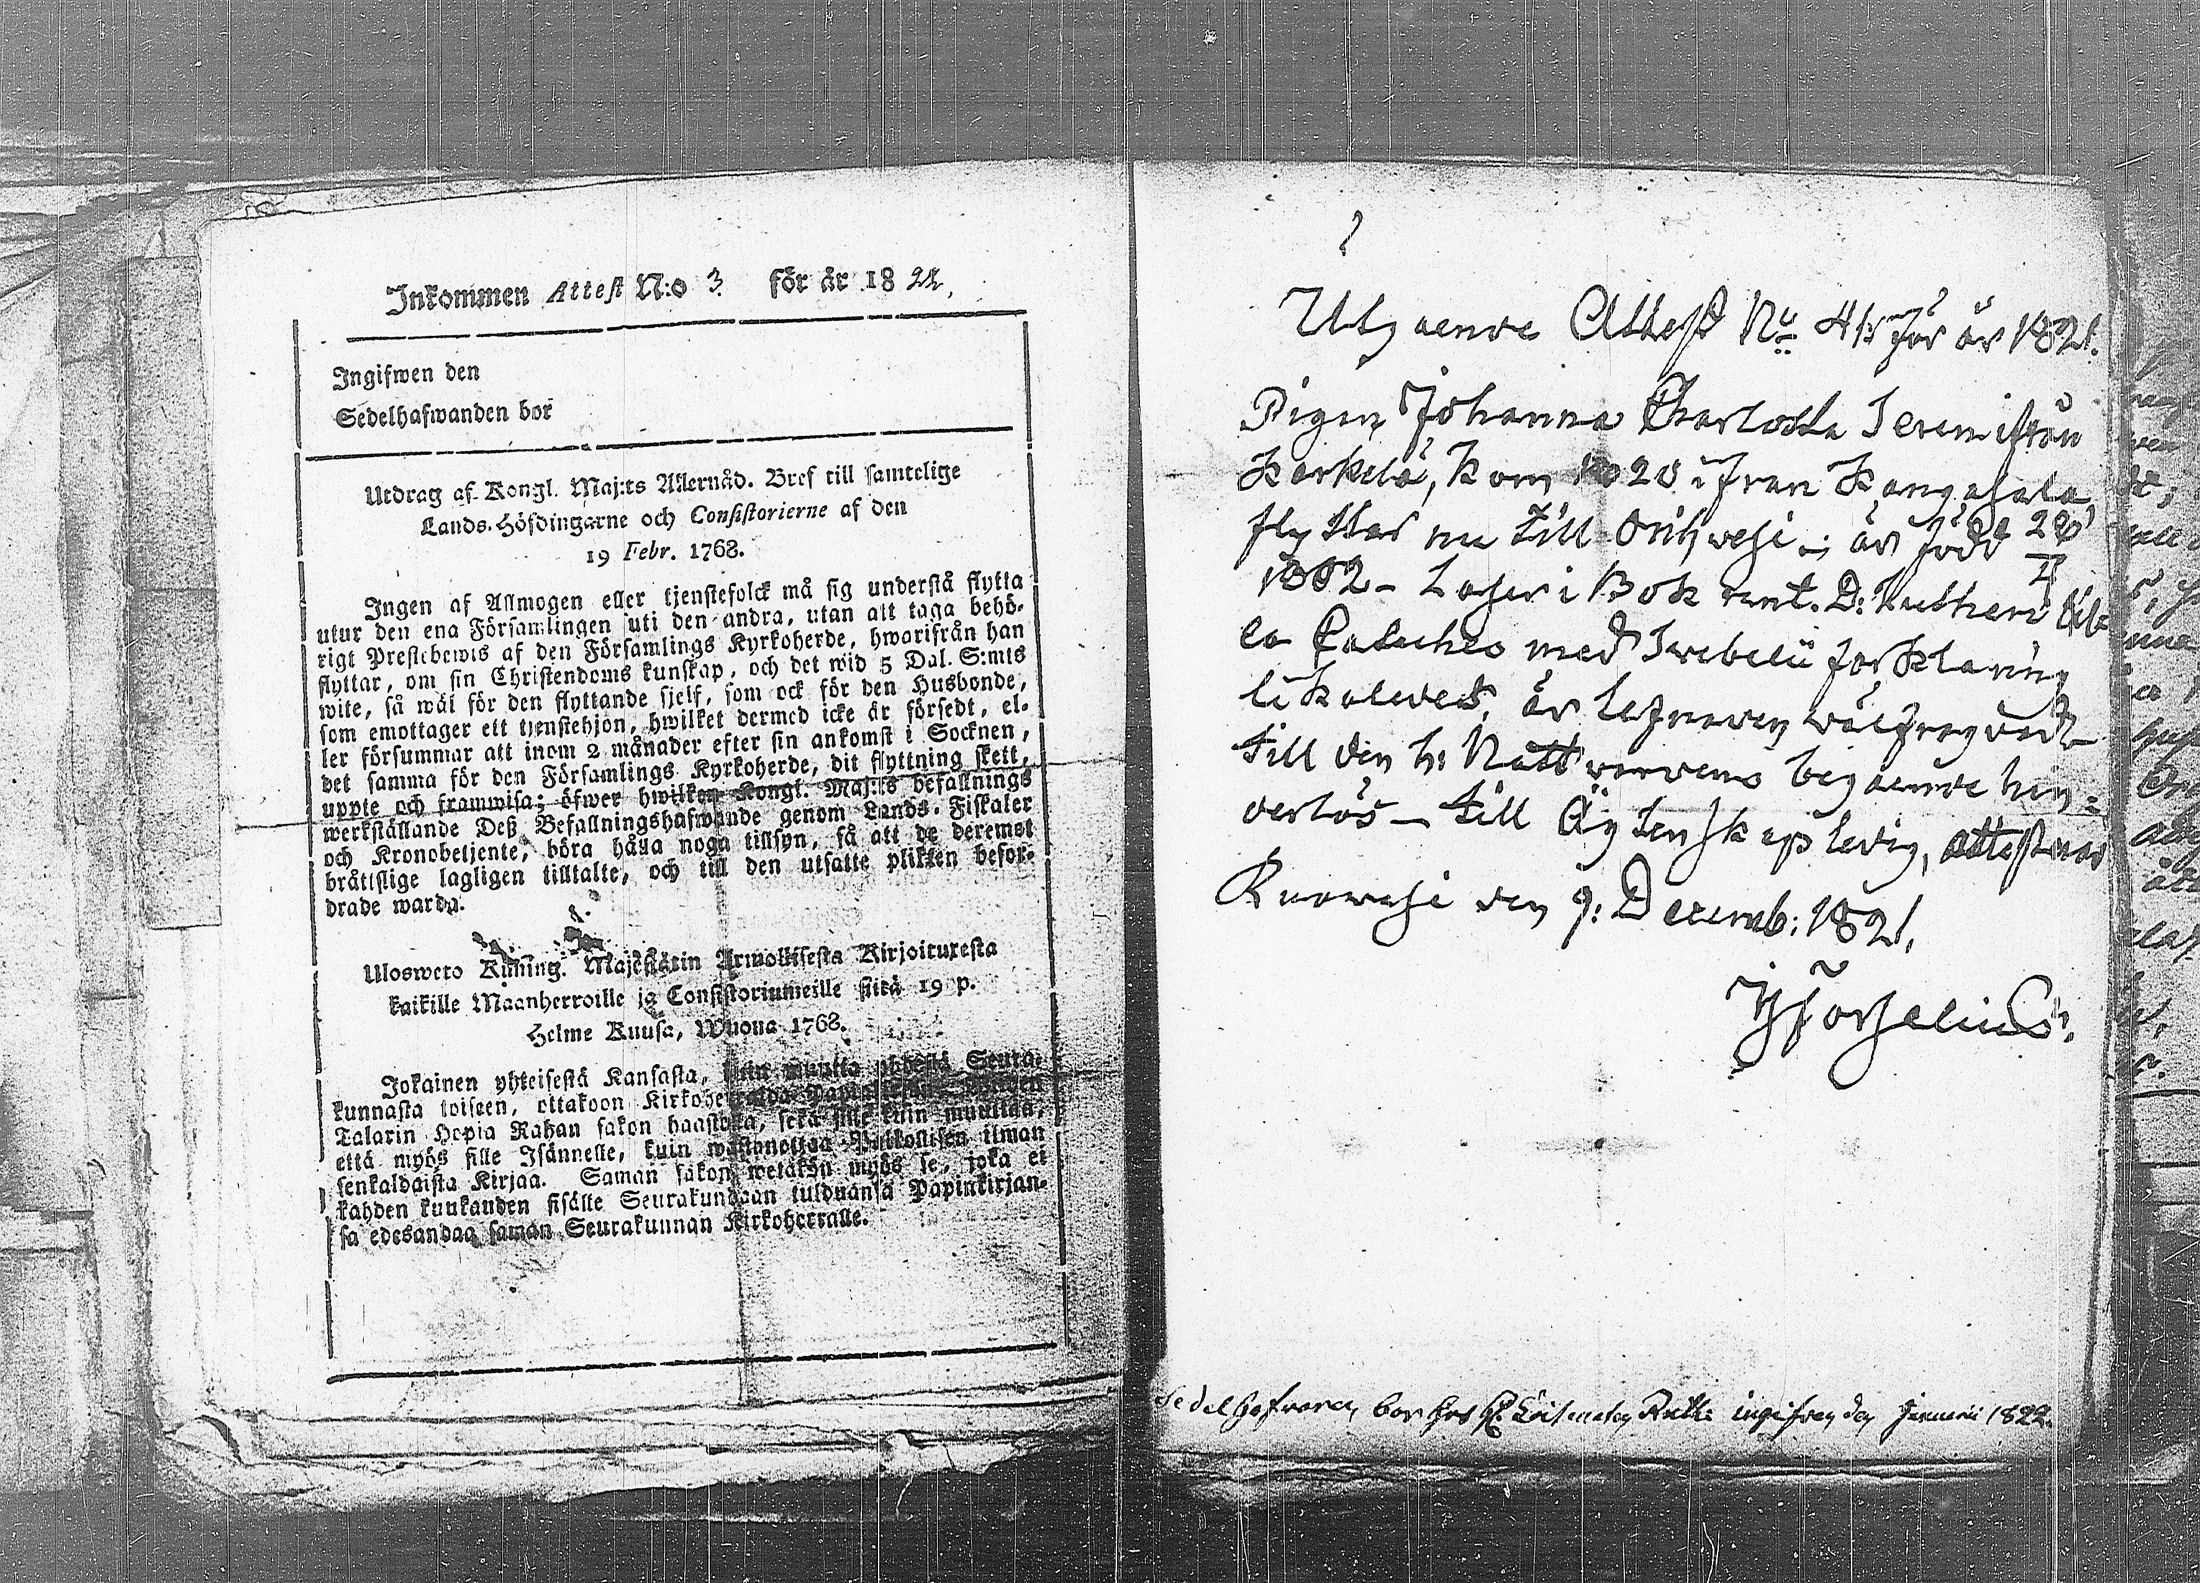 Inkommen Attest N:o 3. för år 1822.
Ingifwen den
Sedelhafwanden bor
Utdrag af Kongl. Maj:ts Allernåd. Bref till samtelige
Lands-Höfdingarne och Consistorierne af den
19 Febr. 1768.
Ingen af Allmogen eller tjenstefolck må sig understå flytta
utur den ena Församlingen uti den andra, utan att taga behö-
rigt Prestebewis af den Församlings Kyrkoherde, hwarifrån han
flyttar, om sin Christendoms kunskap, och det wid 5 Dal. S:mts
wite, så wäl för den flyttande sjelf, som ock för den Husbonde,
som emottager ett tjenstehjon, hwilket dermed icke är försedt, el-
ler försummar att inom 2 månader efter sin ankomst i Socknen,
det samma för den Församlings Kyrkoherde, dit flyttning skett,
uppte och framwisa; öfwer hwilken Kongl. Maj:ts befallnings
werkställande Deß Befallningshafwande genom Lands-Fiskaler
och Kronobetjente, böra hålla noga tillsyn, så att de deremot
bråttslige lagligen tilltalte, och till den utsatte plikten befor-
drade warda.
Ulosweto Kuning. Majestätin Armollisesta Kirjoituresta
kaikille Maanherroille ja Consistoriumeille siitä 19 p.
Helme Kuusa, Wuona 1768.
Jokainen yhteisestä Kansasta, kuin muutta yhdestä Seura-
kunnasta toiseen, ottakoon Kirkoherralda
Talarin Hopia Rahan sakon haastolla, sekä sille kuin muuttaa,
että myös sille Isännelle, kuin wastanottaa Palkollisen ilman
senkaldaista Kirjaa. Saman sakon wetäkön myös se, joka ei
kahden kuukauden sisälle Seurakundaan tulduansa Papinkirjan-
sa edesandaa saman Seurakunnan Kirkoherralle.
Utgaende Attest No 41 för år 1821.
Pigan Johanna Charlotta Jeremiæ från
Karkela, kom 1820 ifran Kangasala
flyttar nu till Orihwesi; är född 28
1802 - Laser i Bok rent. D: Lutheri
la Cateches med Swebelii forklaring
är lefnaden wälfreydad
till den h: Nattwardens begaende hin-
derlös - till Ägtenskap ledig, attesteras
Ruowesi den 9: Decemb: 1821.
Sedelhafwaren bor hos ingifwen den Januarii 1822.